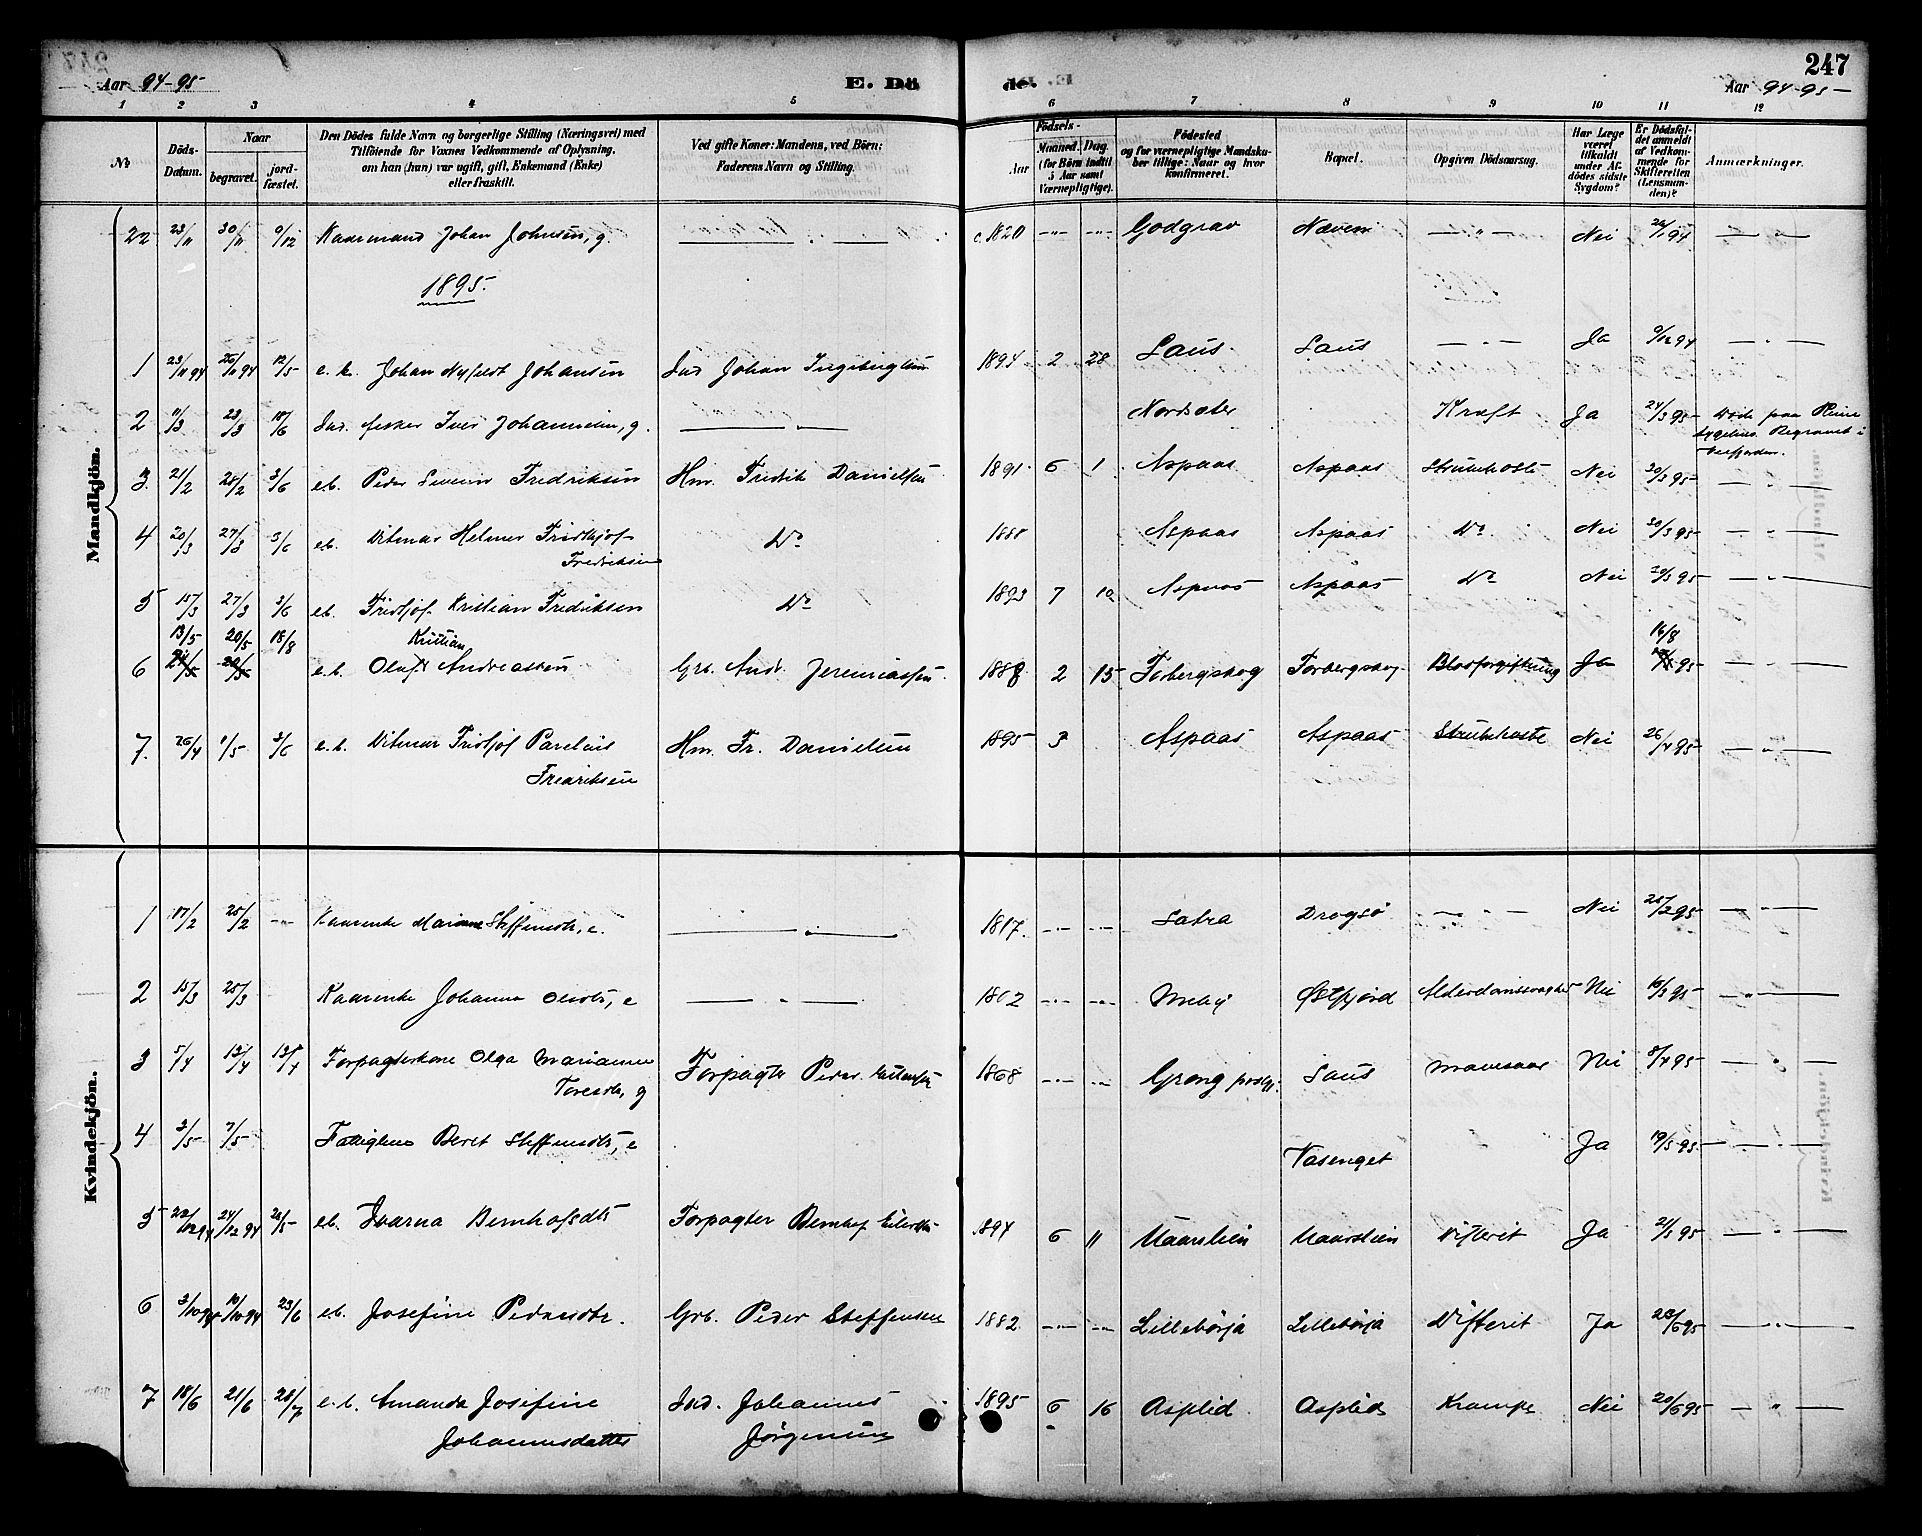 247
Aar 94-95
E. Dö
de.
Aar 94-95
1 2 3 4 5 6 7 8 9 10 11 12
No
Döds-Datum.
Naar
begravet.
jordfæstet.
Den Dödes fulde Navn og borgerlige Stilling (Næringsvei) med
Tilföiende for Voxnes Vedkommende af Oplysning.
om han (hun) var ugift, gift, Enkemand (Enke)
eller fraskilt.
Ved gifte Koner: Mandens, ved Börn:
Faderens Navn og Stilling.
Födsels-
Aar
Maaned.
Dag.
(for Börn indtil
5 Aar samt
Værnepligtige).
Födested
og for værnepligtige Mandska-
ber tillige: Naar og hvor
konfirmeret.
Bopæl.
Opgiven Dödsaarsag.
Har Læge
været
tilkaldt
under Af-
dödes sidste
Sygdom?
Er Dödsfal-
det anmeldt
af Vedkom-
mende for
Skifteretten
(Lensman-
den)?
Anmærkninger.
Mandkjön.
22 23/11 30/11 9/12 Kaarmand Johan Johnsen, g. — " — c. 1820 -"- -"- Godgrav Næven — " — Nei 26/1 94 — " —
1895.
1 23/11 94 26/11 94 12/5 e. b. Johan Nyfeldt Johansen Ind Johan Ingebrigtsen 1894 2 28 Saus Saus — " — Ja 9/12 94 — " —
2 11/3 23/3 10/6 Ind. fisker Iver Johannesen, g. — " — Nordsæter Kræft Ja 24/3 95 Död paa Reine
Sygehus. Begravet i
3. 21/2 28/2 3/6 e.b. Peder Severin Fredriksen Hm. Fredrik Danielsen 1891 6 1 Aspaas Aspaas Strubehoste Nei 30/3 95 — " —
4 20/3 27/3 3/6 e.b. Ditmar Helmer Fridtjof
Fredriksen Do 1888 Aspaas Aspaas Do Nei 30/3 95 — " —
5 15/3 27/3 3/6 e.b. Fridtjof Kristian Fredriksen Do 1893 7 10 Aspaas Aspaas Do Nei 30/3 95 — " —
13/5 20/5 18/8 Kristian 16/8
6 e.b. Oluf Andreassen Grb. And. Jeremiassen 1888 2 15 Forbergskog Forbergskog Blodforgiftning Ja 95 — " —
7. 26/4 1/5 3/6 e.b. Ditmar Fridtjof Parelius
Fredriksen Hm. Fr. Danielsen 1895 3 Aspaas Aspaas Strubehoste Nei 26/4 95 — " —
Kvindekjön.
1 17/2 25/2 -"- Kaarenke Mariane Steffensdtr, e. — " — 1817. -"- -"- Satra Dragsö — " — Nei 25/2 95 — " —
2 15/3 25/3 Kaarenke Johanna Olsdtr, e — " — 1802 -"- -"- Østfjord Alderdomssvaghed Nei 16/3 95 — " —
3 5/4 13/4 13/4 Forpagterkone Olga Marianne
Toresdtr, g Forpagter Peder 1868 -"- -"- Grong prstgj. Saus Mavesaar Nei 8/4 95 — " —
4 2/5 7/5 Fattiglem Beret Steffensdtr, e Vasenget Ja 19/5 95 — " —
5 22/12 94 24/12 94 21/5 e.b. Ivarna Bernhofsdtr Forpagter Bernhof Eilertsen 1894 6 11 Maurslien Maurslien Difterit Ja 21/5 95 — " —
6 3/10 94 10/10 94 23/6 e.b. Josefine Pedersdtr. Grb. Peder Steffensen 1882 -"- -"- Lillebörja Lillebörja Difterit Ja 23/6 95 — " —
7 18/6 21/6 28/7 e.b. Amanda Josefine
Johannesdatter Ind. Johannes
Jörgensen 1895 6 16 Asplid Asplid Krampe Nei 20/6 95 — " —